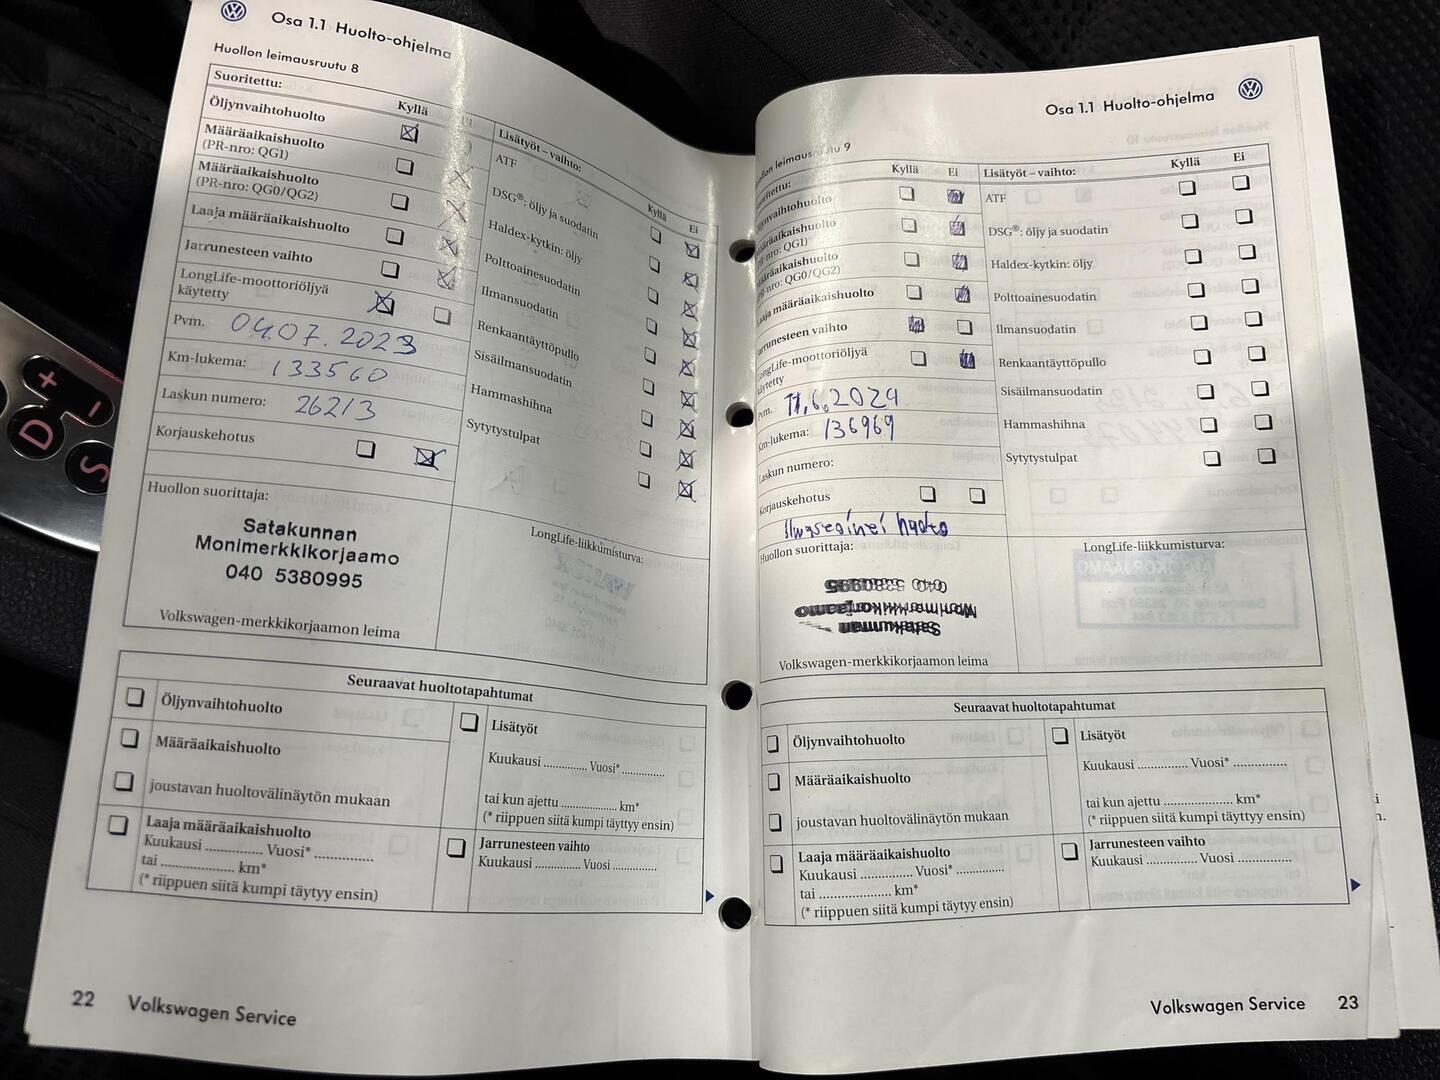 Osa 1.1 Huolto-ohjelma
Huollon leimausruutu 8
Suoritettu:
Kyllä
Ei
Öljynvaihtohuolto
Määräaikaishuolto
(PR-nro: QG1)
Määräaikaishuolto
(PR-nro: QG0/QG2)
Laaja määräaikaishuolto
Jarrunesteen vaihto
LongLife-moottoriöljyä
käytetty
Pvm. 04.07.2023
Km-lukema: 133560
Laskun numero: 26213
Korjauskehotus
Huollon suorittaja:
Satakunnan
Monimerkkikorjaamo
040 5380995
Volkswagen-merkkikorjaamon leima
Lisätyöt – vaihto:
Kyllä
Ei
ATF
DSG®: öljy ja suodatin
Haldex-kytkin: öljy
Polttoainesuodatin
Ilmansuodatin
Renkaantäyttöpullo
Sisäilmansuodatin
Hammashihna
Sytytystulpat
LongLife-liikkumisturva:
Seuraavat huoltotapahtumat
Öljynvaihtohuolto
Määräaikaishuolto
joustavan huoltovälinäytön mukaan
Laaja määräaikaishuolto
Kuukausi .............. Vuosi* ..............
tai .................... km*
(* riippuen siitä kumpi täytyy ensin)
Lisätyöt
Kuukausi .............. Vuosi* ..............
tai kun ajettu .................... km*
(* riippuen siitä kumpi täyttyy ensin)
Jarrunesteen vaihto
Kuukausi .............. Vuosi ..............
22 Volkswagen Service
Osa 1.1 Huolto-ohjelma
leimausruutu 9
Suoritettu:
Kyllä
Ei
Öljynvaihtohuolto
Määräaikaishuolto
(PR-nro: QG1)
Määräaikaishuolto
(PR-nro: QG0/QG2)
Laaja määräaikaishuolto
Jarrunesteen vaihto
LongLife-moottoriöljyä
käytetty
Pvm. 11.6.2024
Km-lukema: 136969
Laskun numero:
Korjauskehotus
huolto
Huollon suorittaja:
Satakunnan
Monimerkkikorjaamo
040 5380995
Volkswagen-merkkikorjaamon leima
Lisätyöt – vaihto:
Kyllä
Ei
ATF
DSG®: öljy ja suodatin
Haldex-kytkin: öljy
Polttoainesuodatin
Ilmansuodatin
Renkaantäyttöpullo
Sisäilmansuodatin
Hammashihna
Sytytystulpat
LongLife-liikkumisturva:
Seuraavat huoltotapahtumat
Öljynvaihtohuolto
Määräaikaishuolto
joustavan huoltovälinäytön mukaan
Laaja määräaikaishuolto
Kuukausi .............. Vuosi* ..............
tai .................... km*
(* riippuen siitä kumpi täytyy ensin)
Lisätyöt
Kuukausi .............. Vuosi* ..............
tai kun ajettu .................... km*
(* riippuen siitä kumpi täyttyy ensin)
Jarrunesteen vaihto
Kuukausi .............. Vuosi ..............
Volkswagen Service 23
D
S
+
-